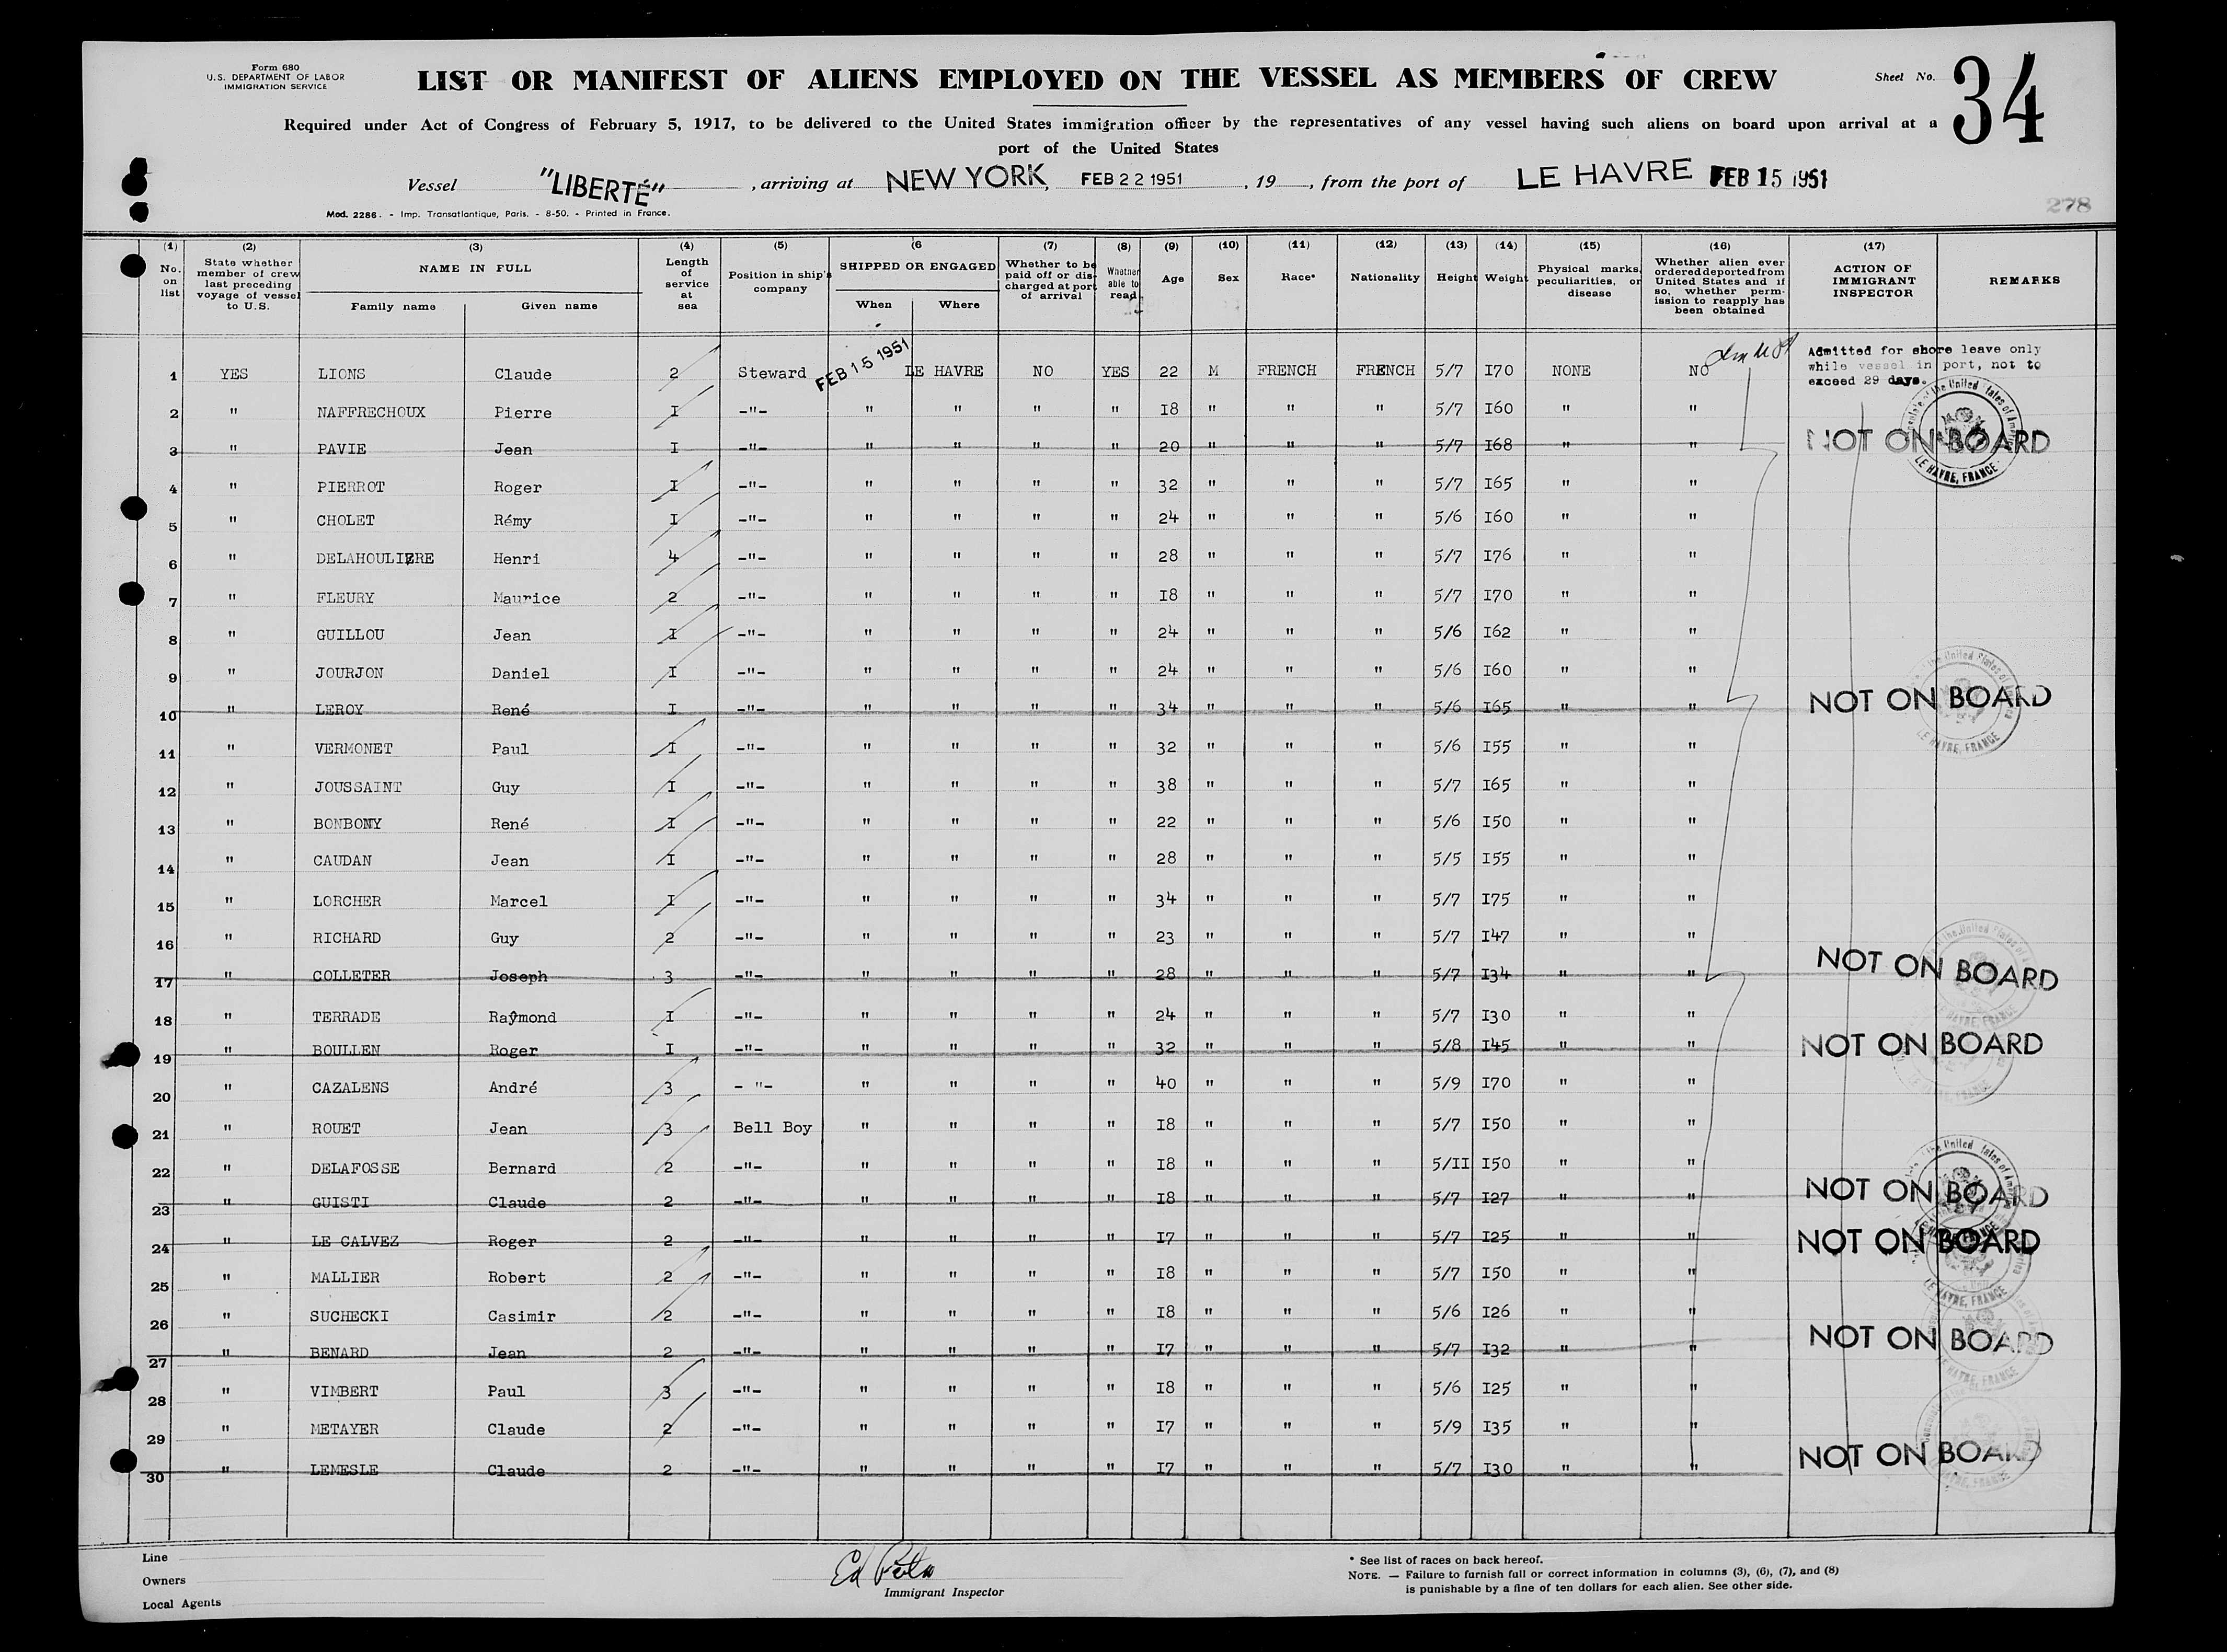 Form 680
U.S. DEPARTMENT OF LABOR
IMMIGRATION SERVICE
LIST OR MANIFEST OF ALIENS EMPLOYED ON THE VESSEL AS MEMBERS OF CREW
Sheet No. 34
Required under Act of Congress of February 5, 1917, to be delivered to the United States immigration officer by the representatives of any vessel having such aliens on board upon arrival at a
port of the United States
Vessel "LIBERTÉ", arriving at NEW YORK, FEB 22 1951, 19 , from the port of LE HAVRE FEB 15 1951
Mod. 2286. - Imp. Transatlantique, Paris. - 8-50. - Printed in France.
278
(1) (2) (3) (4) (5) (6 (7) (8) (9) (10) (11) (12) (13) (14) (15) (16) (17)
No. on list
State whether member of crew last preceding voyage of vessel to U.S.
NAME IN FULL
Family name Given name
Length of service at sea
Position in ship's company
SHIPPED OR ENGAGED
When Where
Whether to be paid off or discharged at port of arrival
Whether able to read
Age
Sex
Race*
Nationality
Height
Weight
Physical marks, peculiarities, or disease
Whether alien ever ordered deported from United States and if so, whether permission to reapply has been obtained
ACTION OF IMMIGRANT INSPECTOR
REMARKS
1 YES LIONS Claude 2 Steward FEB 15 1951 LE HAVRE NO YES 22 M FRENCH FRENCH 5/7 I70 NONE NO
Admitted for shore leave only
while vessel in port, not to
exceed 29 days.
2 " NAFFRECHOUX Pierre I -"- " " " " I8 " " " 5/7 I60 " "
3 " PAVIE Jean I -"- " " " " 20 " " " 5/7 I68 " " NOT ON BOARD
4 " PIERROT Roger I -"- " " " " 32 " " " 5/7 I65 " "
5 " CHOLET Rémy I -"- " " " " 24 " " " 5/6 I60 " "
6 " DELAHOULIERE Henri 4 -"- " " " " 28 " " " 5/7 I76 " "
7 " FLEURY Maurice 2 -"- " " " " I8 " " " 5/7 I70 " "
8 " GUILLOU Jean I -"- " " " " 24 " " " 5/6 I62 " "
9 " JOURJON Daniel I -"- " " " " 24 " " " 5/6 I60 " "
10 " LEROY René I -"- " " " " 34 " " " 5/6 I65 " " NOT ON BOARD
11 " VERMONET Paul I -"- " " " " 32 " " " 5/6 I55 " "
12 " JOUSSAINT Guy I -"- " " " " 38 " " " 5/7 I65 " "
13 " BONBONY René I -"- " " " " 22 " " " 5/6 I50 " "
14 " CAUDAN Jean I -"- " " " " 28 " " " 5/5 I55 " "
15 " LORCHER Marcel I -"- " " " " 34 " " " 5/7 I75 " "
16 " RICHARD Guy 2 -"- " " " " 23 " " " 5/7 I47 " "
17 " COLLETER Joseph 3 -"- " " " " 28 " " " 5/7 I34 " " NOT ON BOARD
18 " TERRADE Raymond I -"- " " " " 24 " " " 5/7 I30 " "
19 " BOULLEN Roger I -"- " " " " 32 " " " 5/8 I45 " " NOT ON BOARD
20 " CAZALENS André 3 - "- " " " " 40 " " " 5/9 I70 " "
21 " ROUET Jean 3 Bell Boy " " " " I8 " " " 5/7 I50 " "
22 " DELAFOSSE Bernard 2 -"- " " " " I8 " " " 5/II I50 " "
23 " GUISTI Claude 2 -"- " " " " I8 " " " 5/7 I27 " " NOT ON BOARD
24 " LE CALVEZ Roger 2 -"- " " " " I7 " " " 5/7 I25 " " NOT ON BOARD
25 " MALLIER Robert 2 -"- " " " " I8 " " " 5/7 I50 " "
26 " SUCHECKI Casimir 2 -"- " " " " I8 " " " 5/6 I26 " "
27 " BENARD Jean 2 -"- " " " " I7 " " " 5/7 I32 " " NOT ON BOARD
28 " VIMBERT Paul 3 -"- " " " " I8 " " " 5/6 I25 " "
29 " METAYER Claude 2 -"- " " " " I7 " " " 5/9 I35 " "
30 " LEMESLE Claude 2 -"- " " " " I7 " " " 5/7 I30 " " NOT ON BOARD
LE HAVRE, FRANCE
Line
Owners
Local Agents
Ed
Immigrant Inspector
* See list of races on back hereof.
NOTE. — Failure to furnish full or correct information in columns (3), (6), (7), and (8)
is punishable by a fine of ten dollars for each alien. See other side.